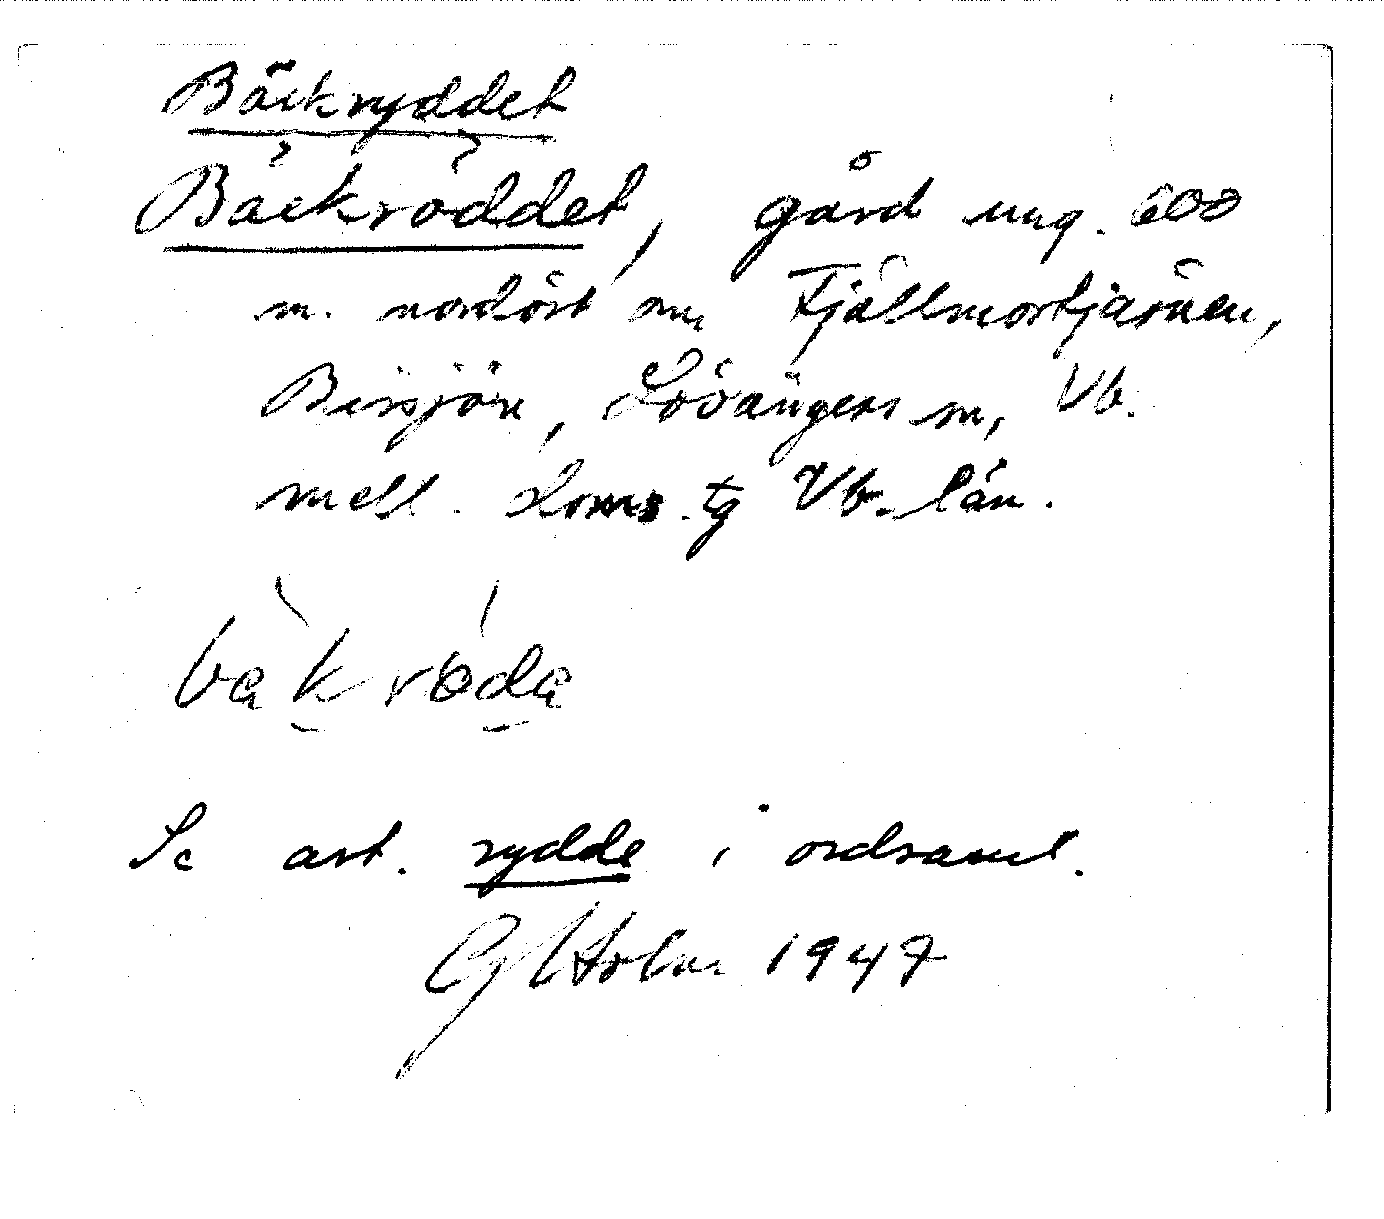 Bäckryddet
Bäckröddet, gård ung. 600
m. nordöst om Fjällmostjärnen,
Bissjön, Lövångers sn, Vb.
mell. doms. tg Vb. län.
bäkröda
Se art. rydde i ordsaml.
G Holm 1947